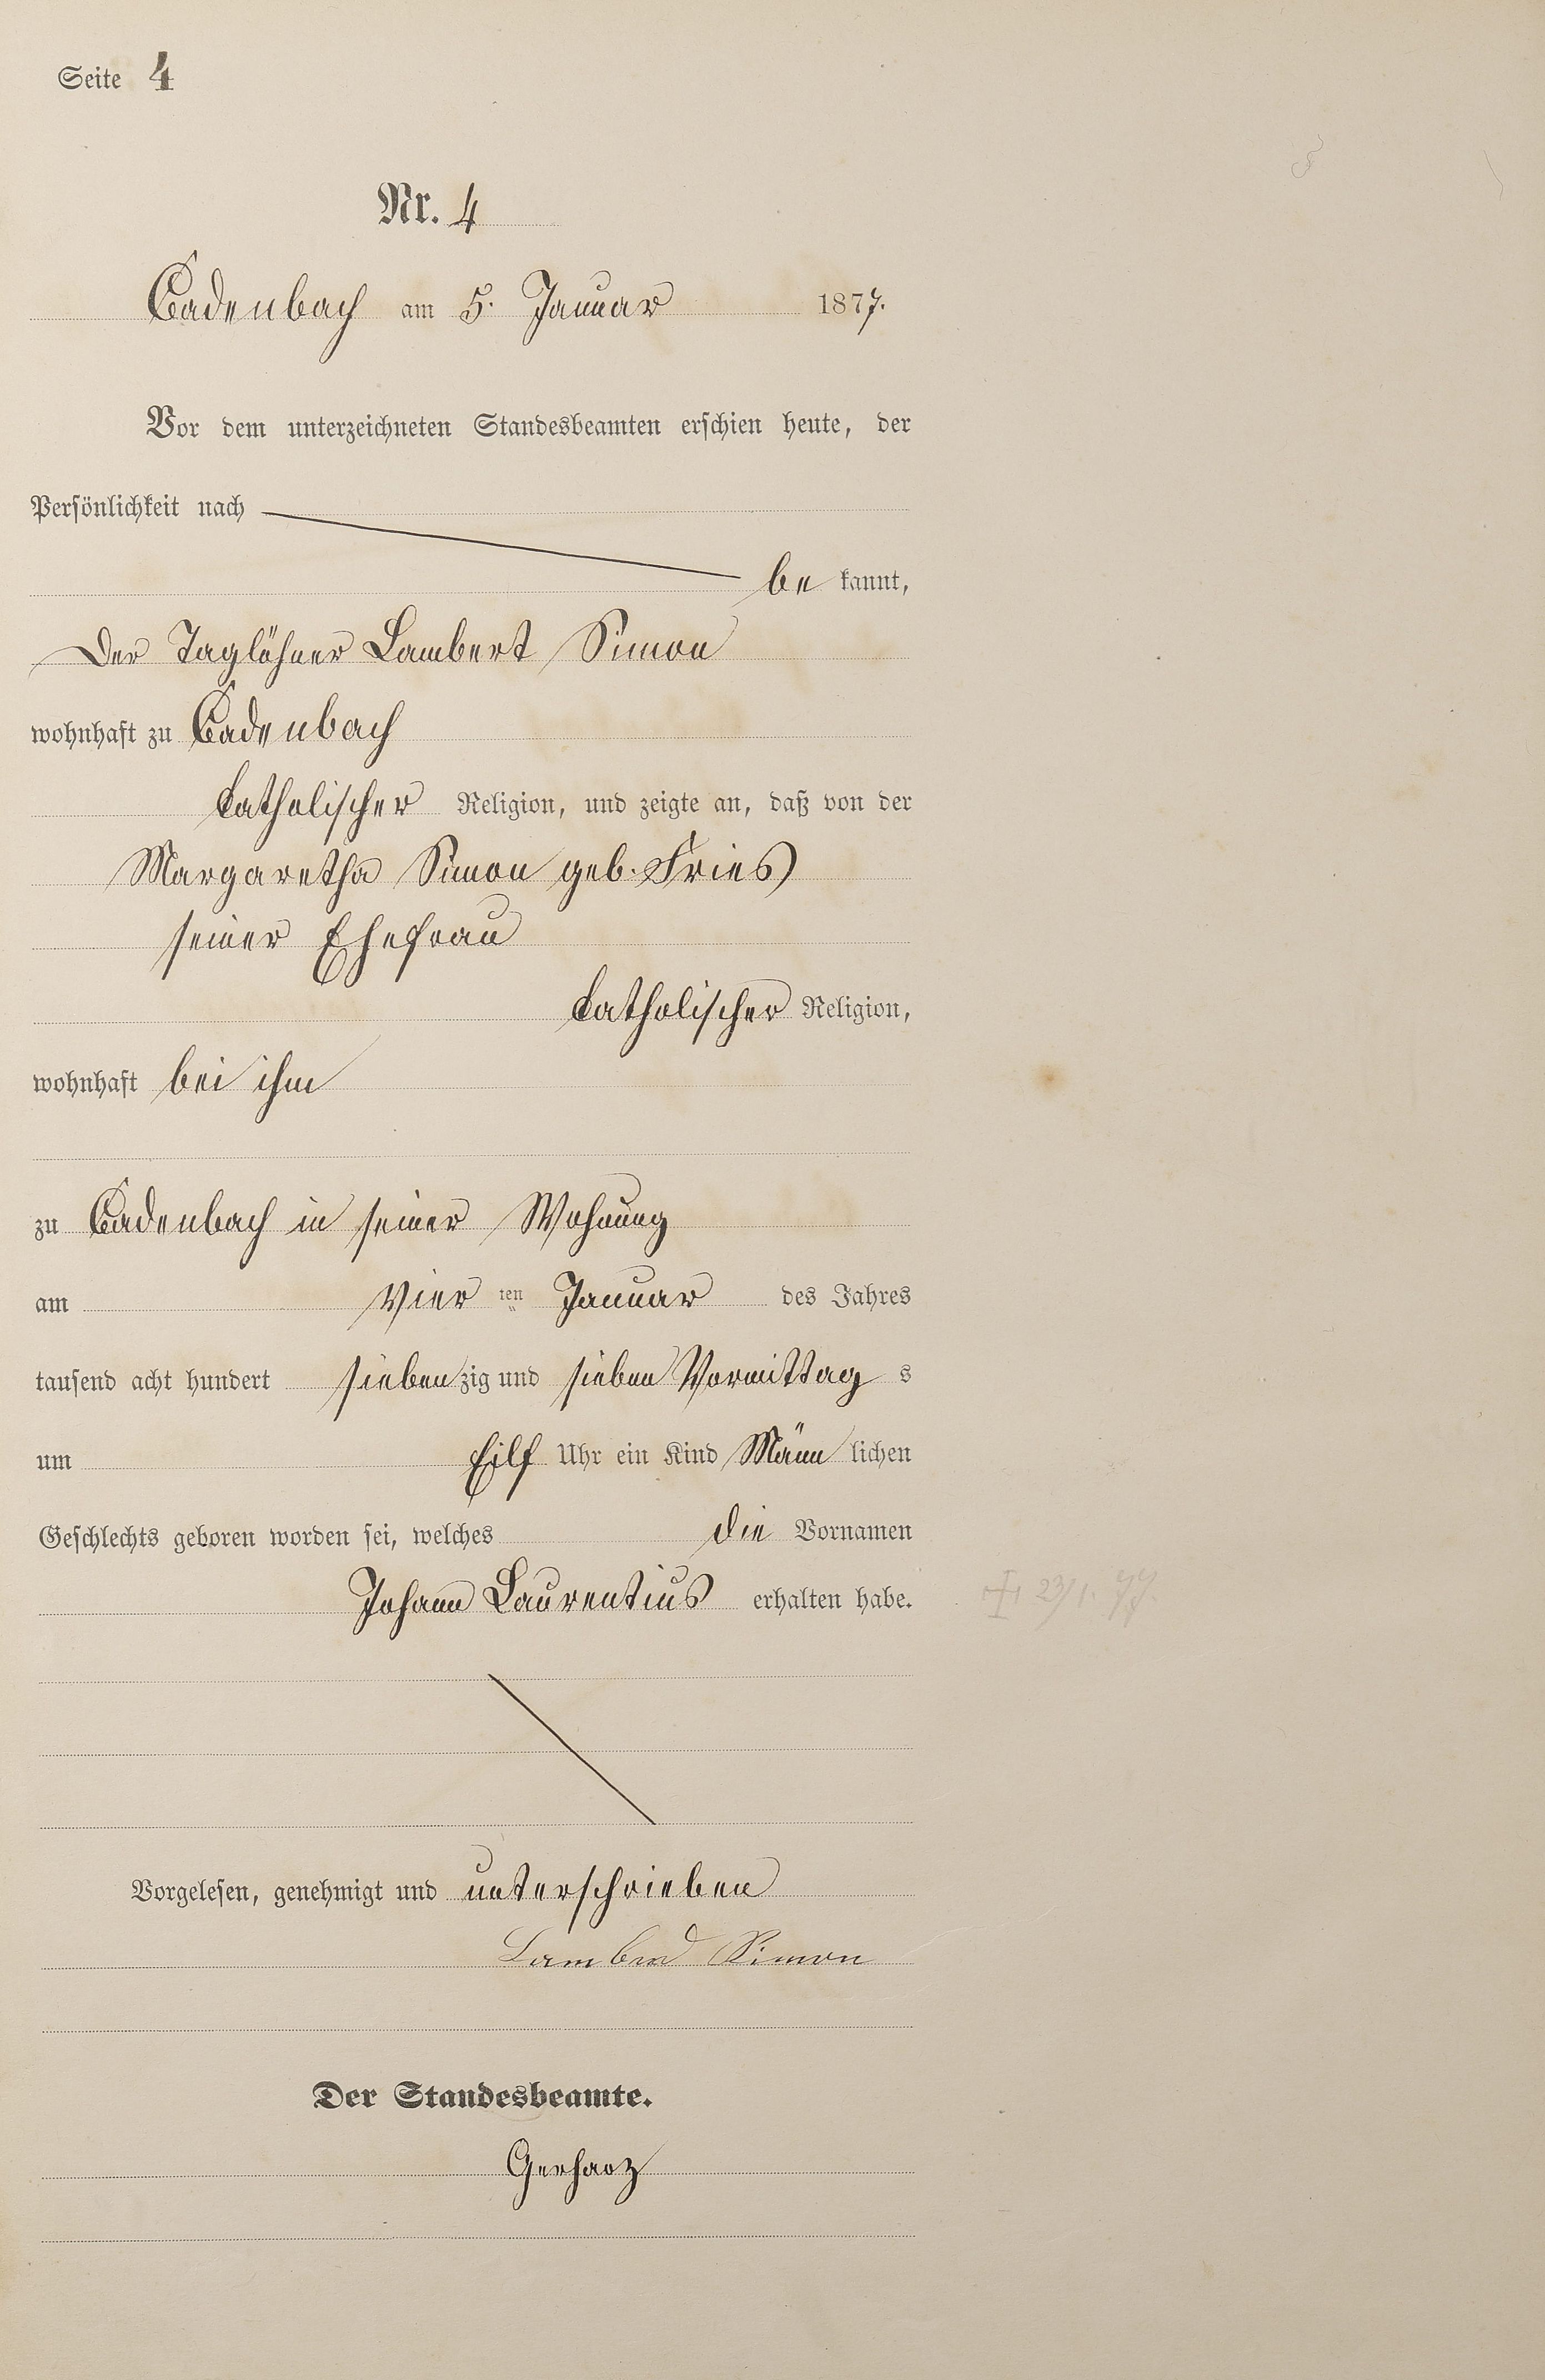 Seite 4
Nr. 4
Cadenbach am 5. Januar 1877.
Vor dem unterzeichneten Standesbeamten erschien heute, der
Persönlichkeit nach
be kannt,
Der Taglöhner Lambert Simon
wohnhaft zu Cadenbach
katholischer Religion, und zeigte an, daß von der
Margaretha Simon geb. Fries
seiner Ehefrau
katholischer Religion,
wohnhaft bei ihm
zu Cadenbach in seiner Wohnung
am Vier ten Januar des Jahres
tausend acht hundert siebenzig und sieben Vormittag s
um Eilf Uhr ein Kind Männ lichen
Geschlechts geboren worden sei, welches die Vornamen
Johann Laurentius erhalten habe.
+ 23/1. 77.
Vorgelesen, genehmigt und unterschrieben
Lamberd Simon
Der Standesbeamte.
Gerharz